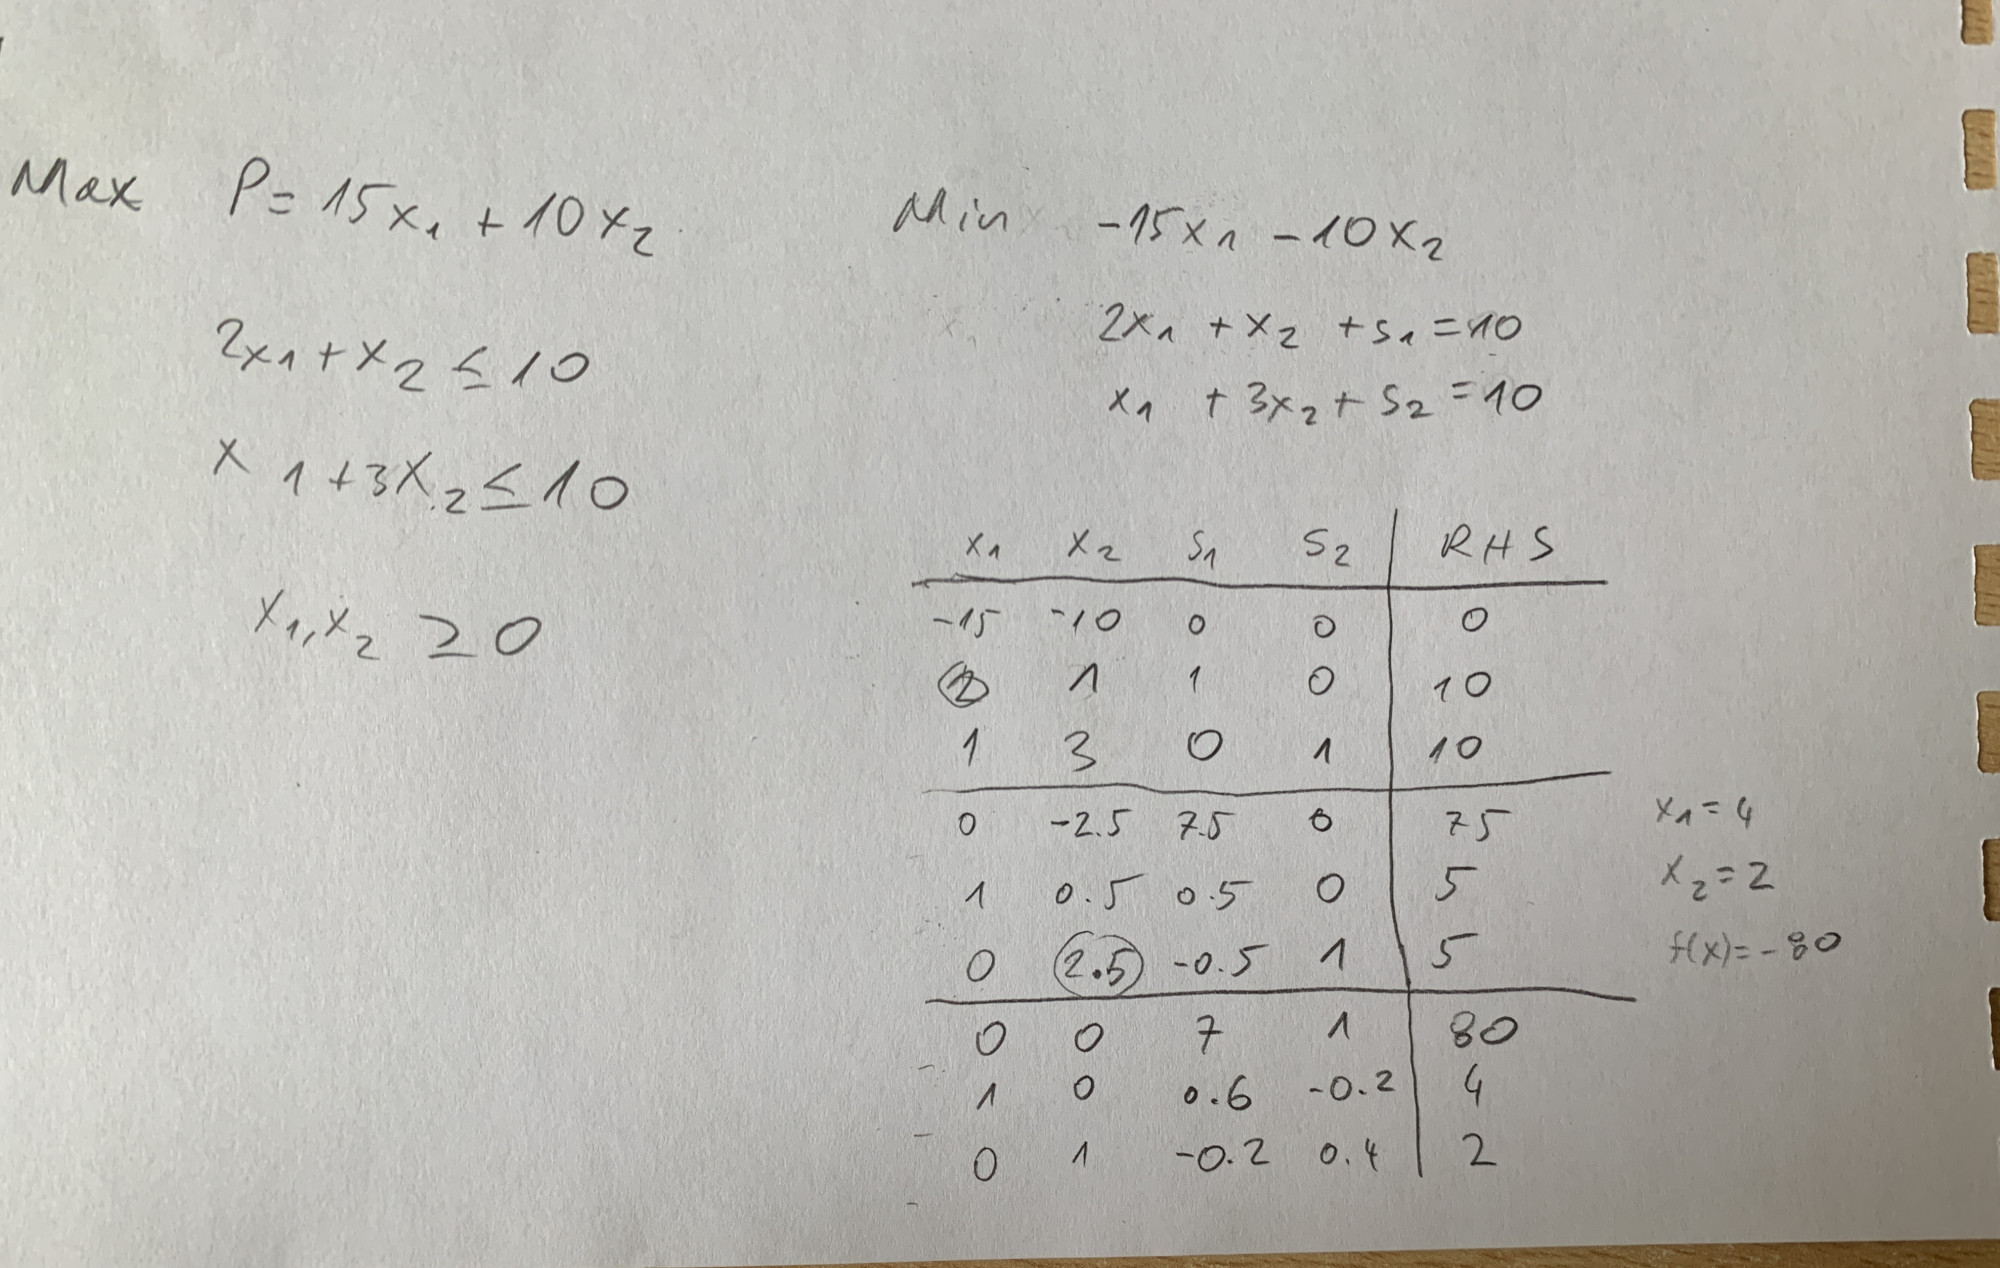 Max P = 15x₁ + 10x₂
2x₁ + x₂ ≤ 10
x₁ + 3x₂ ≤ 10
x₁, x₂ ≥ 0
Min -15x₁ - 10x₂
2x₁ + x₂ + s₁ = 10
x₁ + 3x₂ + s₂ = 10
x₁ x₂ s₁ s₂ RHS
-15 -10 0 0 0
2 1 1 0 10
1 3 0 1 10
0 -2.5 7.5 0 75
1 0.5 0.5 0 5
0 2.5 -0.5 1 5
0 0 7 1 80
1 0 0.6 -0.2 4
0 1 -0.2 0.4 2
x₁ = 4
x₂ = 2
f(x) = -80